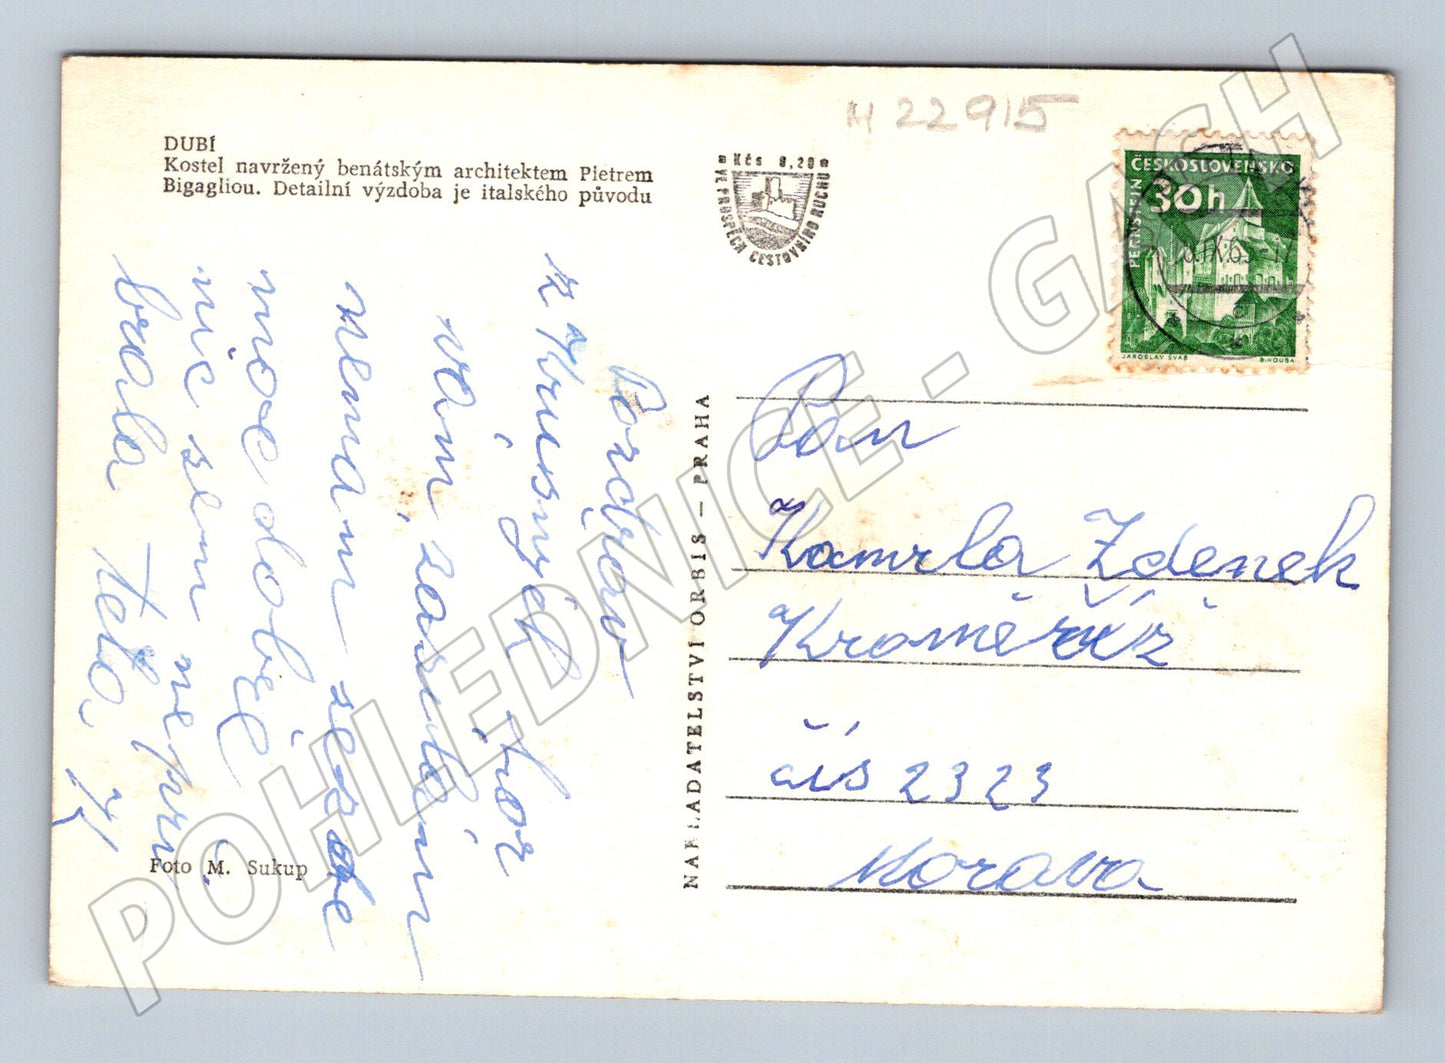 DUBÍ
Kostel navržený benátským architektem Pietrem
Bigagliou. Detailní výzdoba je italského původu
Kčs 0,20
VE PROSPĚCH CESTOVNÍHO RUCHU
M 22915
ČESKOSLOVENSKO
30h
PERNŠTEJN
JAROSLAV ŠVÁB
B. HOUSA
Pozdrav
z Krusnych hor
vám zasílám
nemam se
moc dobře
nic sem nepři
brala teta
Pan
Kamrla Zdenek
Kroměříž
čís 2323
Morava
NAKLADATELSTVÍ ORBIS — PRAHA
Foto M. Sukup
POHLEDNICE - GASH